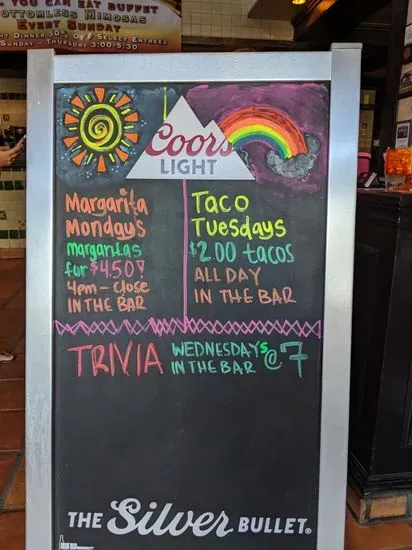 YOU CAN EAT BUFFET
BOTTOMLESS MIMOSAS
EVERY SUNDAY
DINNER 50% OFF SELECT ENTREES
SUNDAY - THURSDAY 3:00-5:30
Coors
LIGHT
Margarita
Mondays
margaritas
for $4.50!
4pm - close
IN THE BAR
Taco
Tuesdays
$2.00 tacos
ALL DAY
IN THE BAR
TRIVIA WEDNESDAYS @ 7
IN THE BAR
THE Silver BULLET®